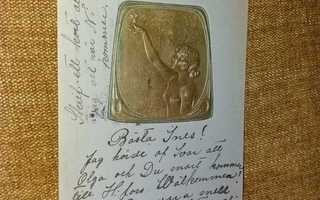 Skrif ett kort att
jag vet när Ni
kommer
Bästa Ines!
Jag hörde af Ivar att
Olga och Du snart kommer
till H:fors Välkommen!
snell